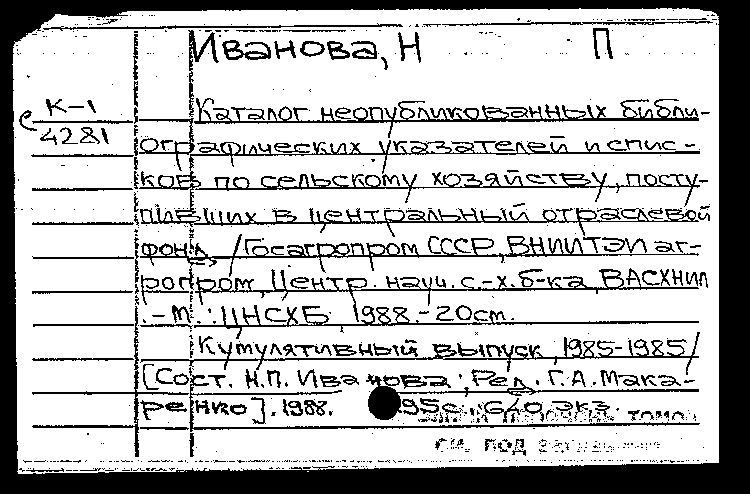 Иванова, Н П
К-1
е 4281
Каталог неопубликованных библи-
ографических указателей и спис-
ков по сельскому хозяйству, посту-
пивших в Центральный отраслевой
фонд / Госагропром СССР, ВНИИТЭИагропром, Центр. науч. с.-х. б-ка ВАСХНИЛ
.-М.: ЦНСХБ, 1988.-20см.
Кумулятивный выпуск, 1985-1985/
[Сост. Н.П. Иванова; Ред. Г.А. Мака-
ренко]. 1988. 95с. 640 экз.
томов
см. под